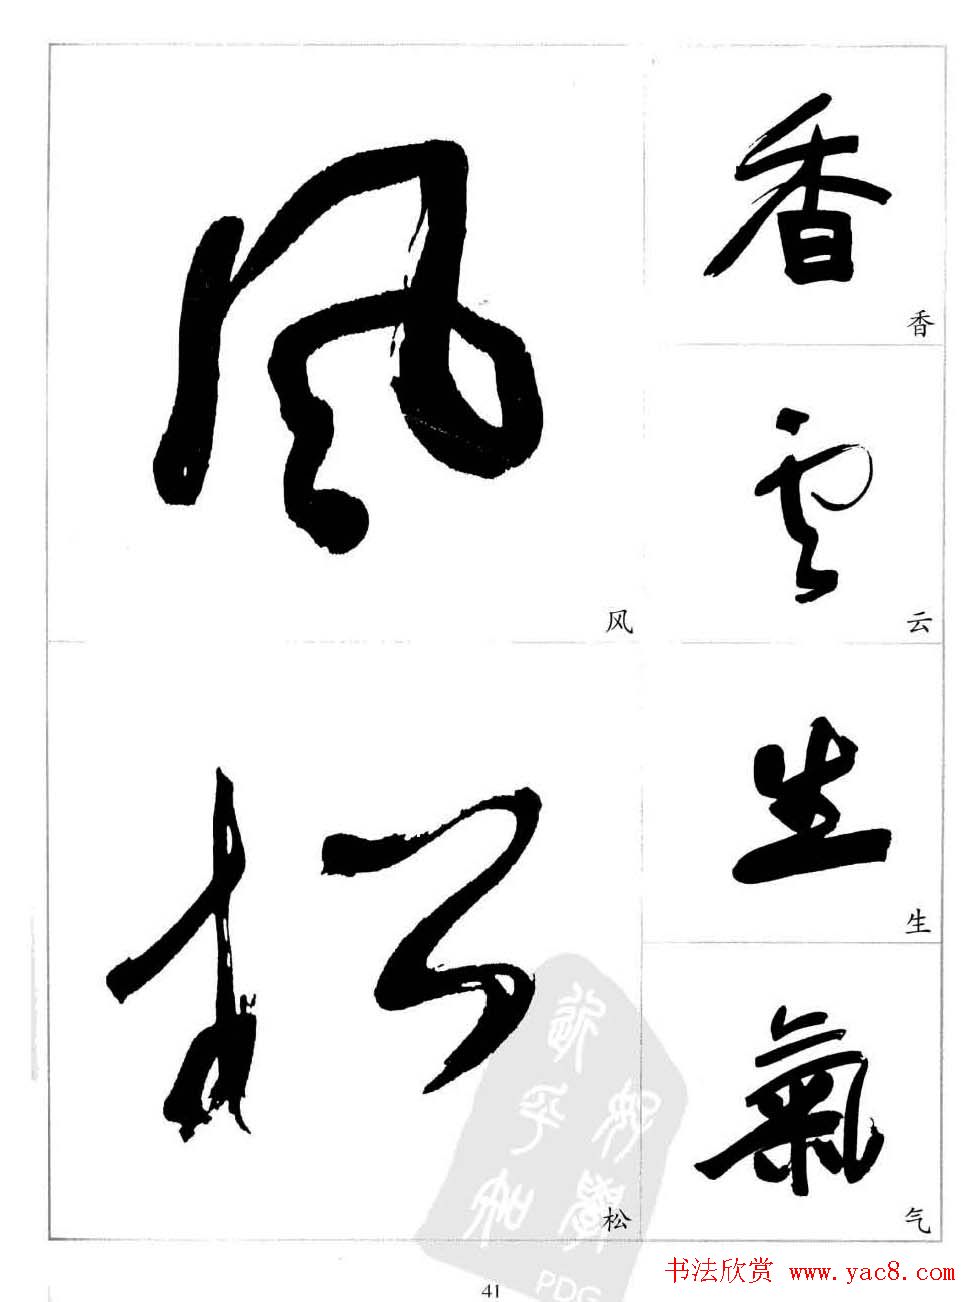 風
风
香
香
雲
云
生
生
松
松
氣
气
41
书法欣赏 www.yac8.com
PDG